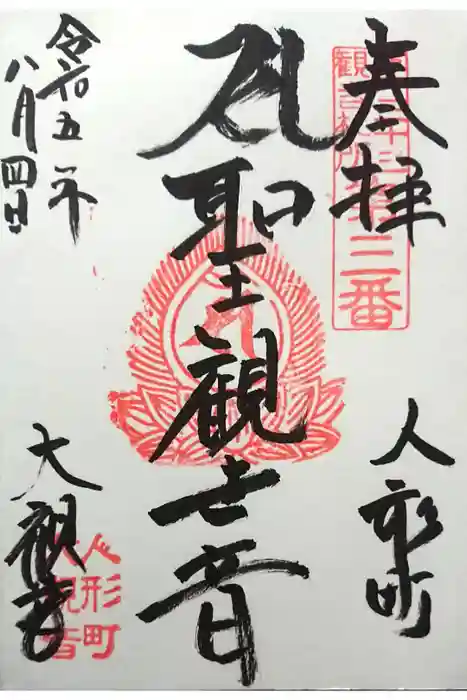 奉拝
人形町
観音札所
第三番
聖観世音
令和五年
八月四日
大観音
人形町
大観音